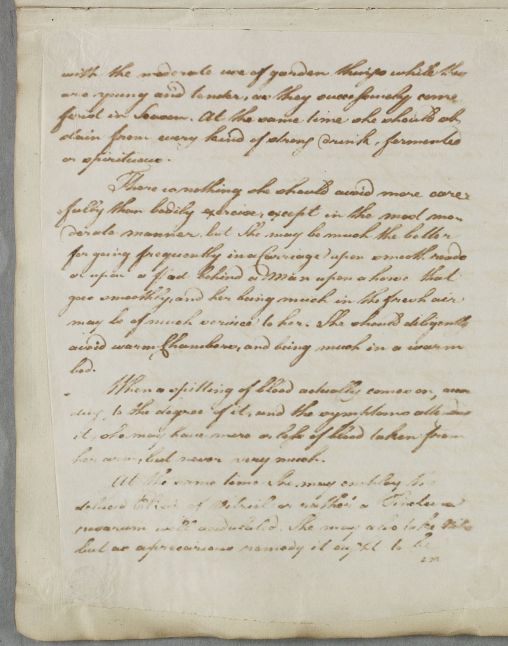 with the moderate use of garden things while they
are young and tender, as they successively come
first in Season. At the same time she should ab-
stain from every kind of strong drink, fermented
or spirituous.
There is nothing she should avoid more care-
fully than bodily exercise, except in the most mo-
derate manner, but She may be much the better
for going frequently in a Carriage upon smooth roads
or upon a Pad behind a Man upon a horse that
goes smoothly, and her being much in the fresh air
may be of much service to her. She should diligently
avoid warm Chambers, and being much in a warm
bed.
When a spitting of blood actually comes on, accor
ding to the degree of it, and the symptoms attending
it, she may have more or less of blood taken from
her arm, but never very much.
At the same time She may employ the
Elixir of Vitriol or rather a Tinctura
rosarum well acidulated. She may also take Nitre
but as a precarious remedy it ought to be
in